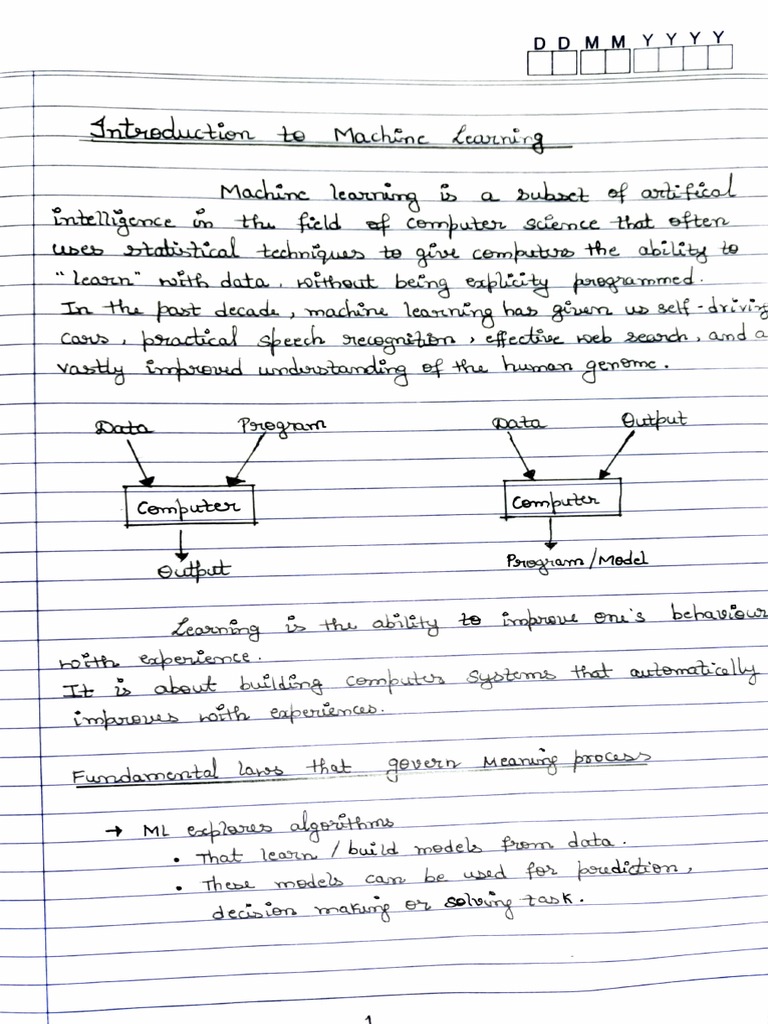 D D M M Y Y Y Y
Introduction to Machine Learning
Machine learning is a subset of artifical
intelligence in the field of computer science that often
uses statistical techniques to give computers the ability to
"learn" with data, without being explicity programmed.
In the past decade, machine learning has given us self-driving
cars, practical speech recognition, effective web search, and a
vastly improved understanding of the human genome.
Data Program Data Output
Computer Computer
Output Program/Model
Learning is the ability to improve one's behaviour
with experience.
It is about building computer systems that automatically
improves with experiences.
Fundamental laws that govern Meaning process
→ ML explores algorithms
• That learn / build models from data.
• These models can be used for prediction,
decision making or solving task.
1